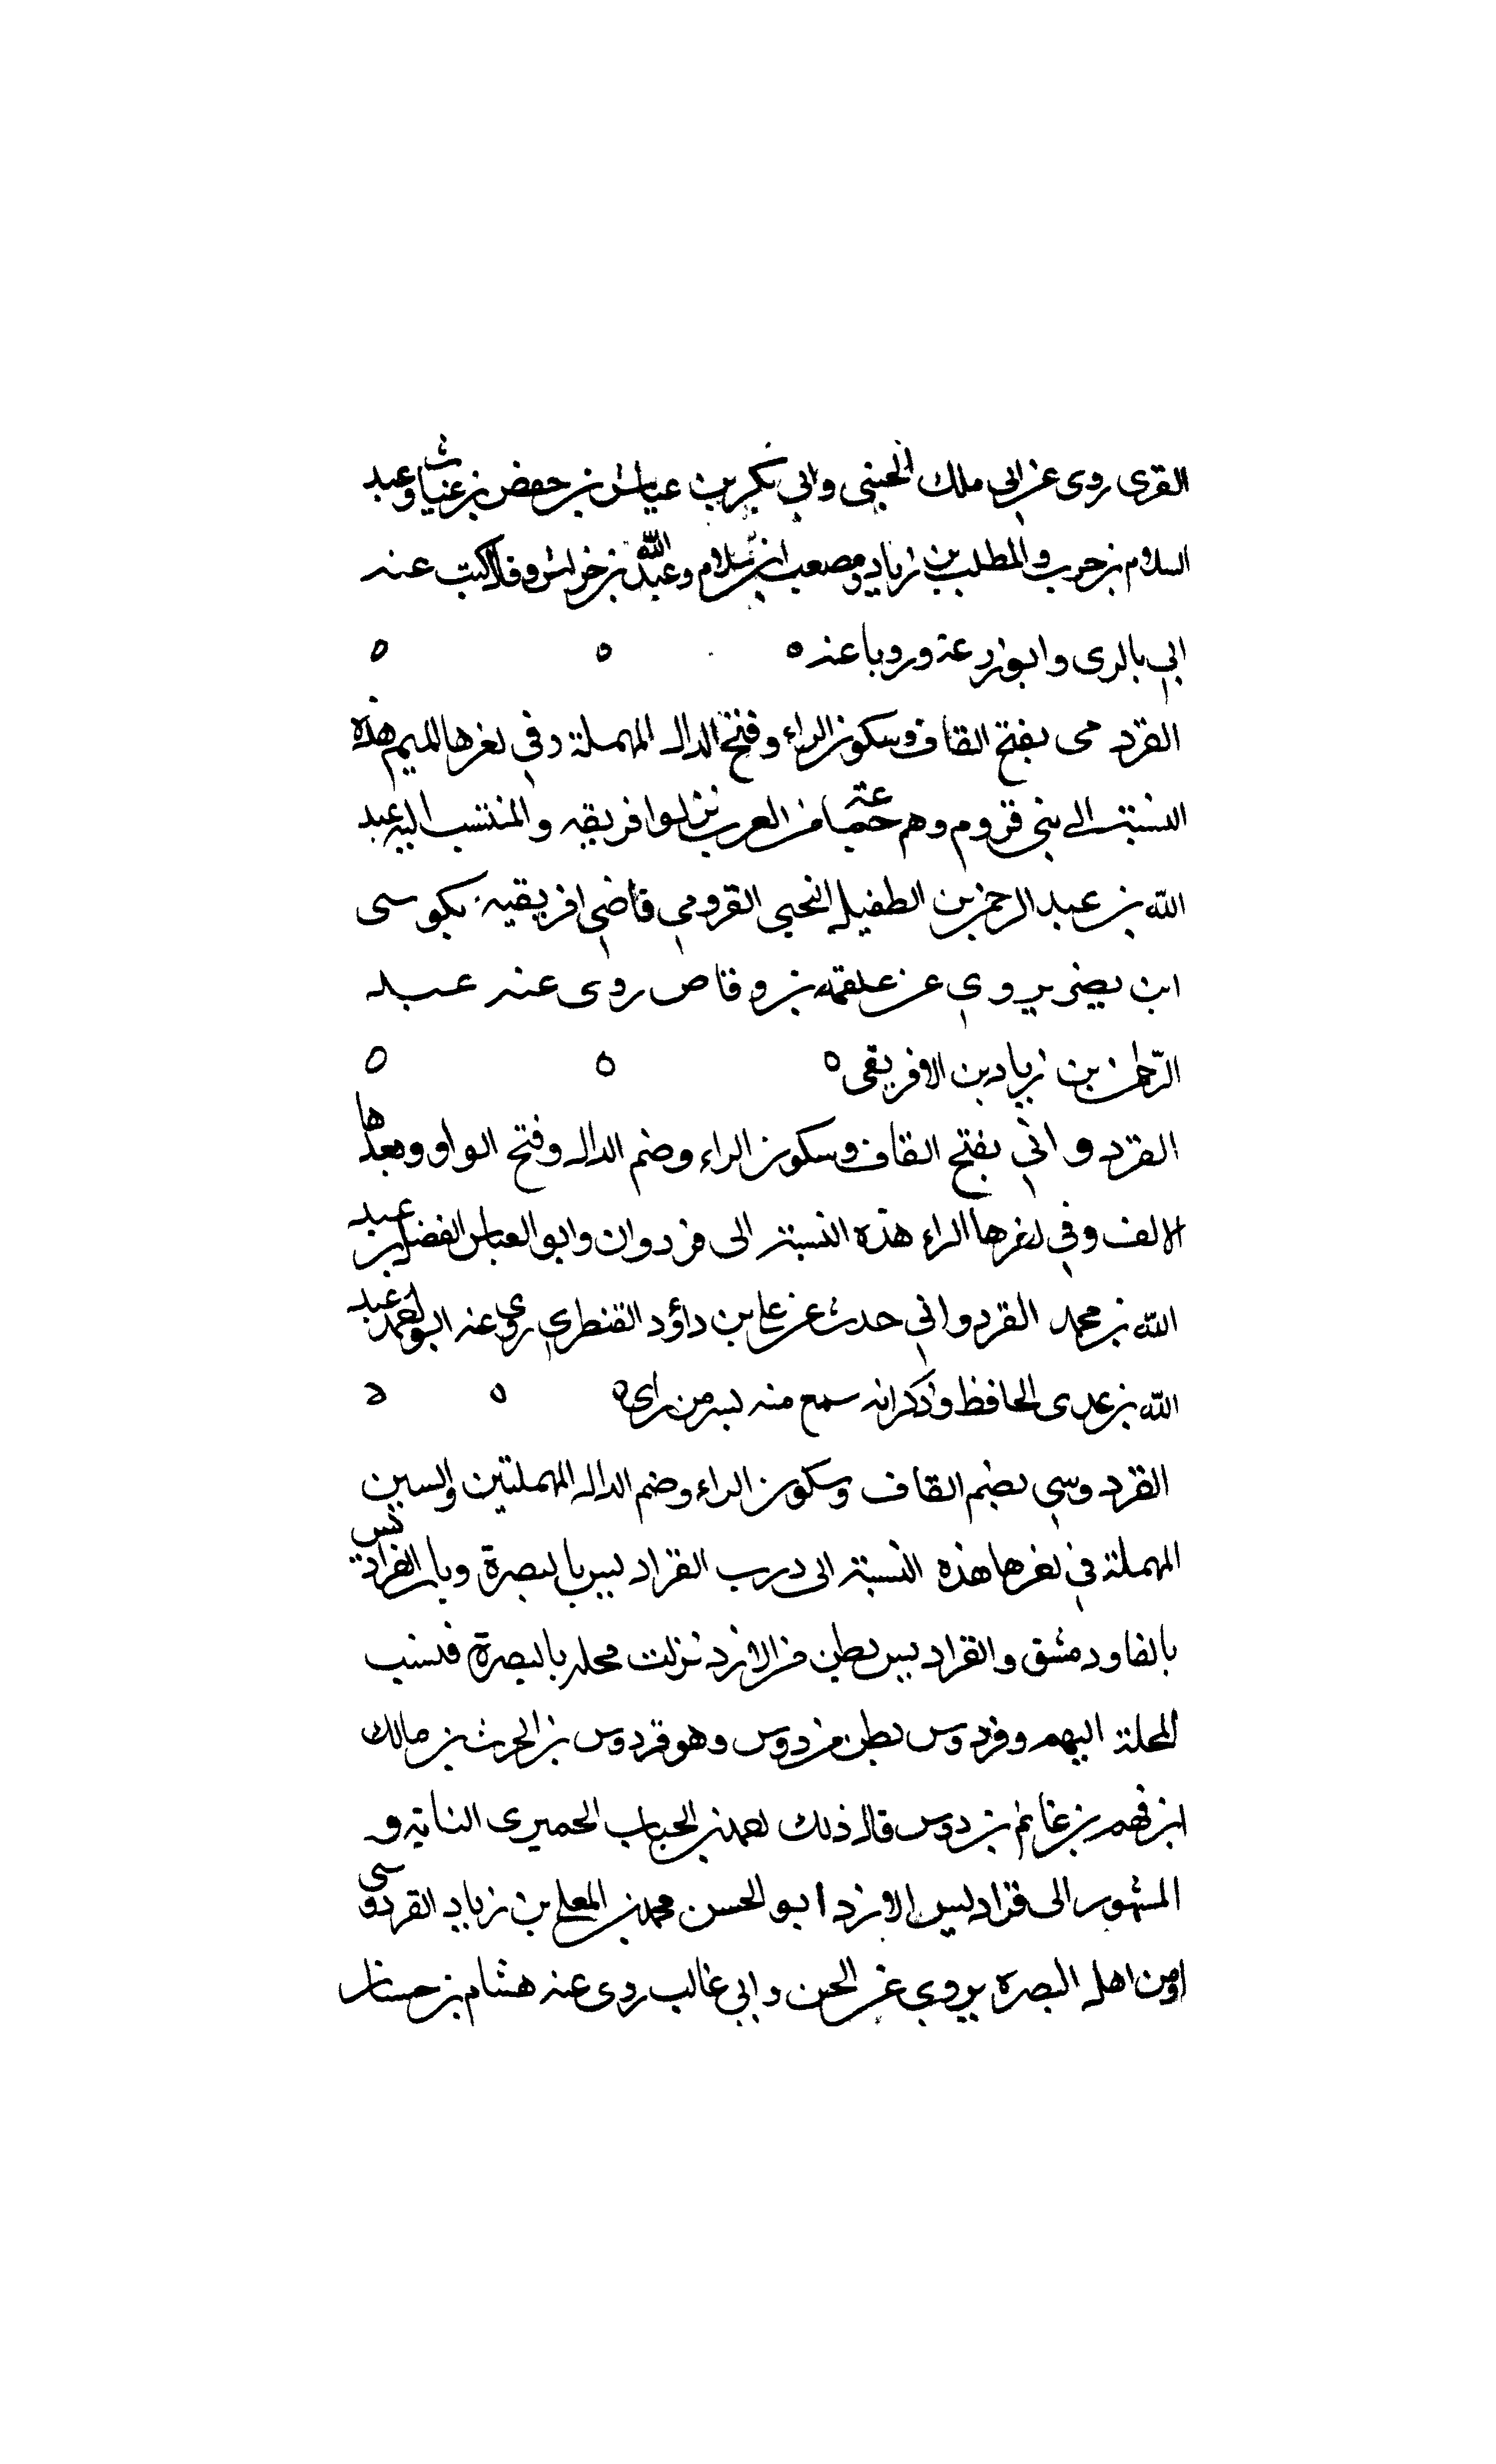 القرى روى عن ابى ملك الجنبى وابي بكر بن عياش بن حفص بن غياث وعبد
السلام بن حرب والمطلب بن زياد ومصعب ابن سلام وعبد الله بن خراش وقال كتبت عنه
ابي بالرى وابو زرعة ورويا عنه ه ه ه
القردمى بفتح القاف وسكون الراء وفتح الدال المهملة وفي اخرها الميم هذه
النسبة الى بنى قردم وهم جماعة من العرب نزلوا فريقيه والمنتسب اليه عبد
الله بن عبد الرحمن بن الطفيل القردمي قاضي افريقيه
ابن نصير يروي عن علقمة بن وقاص روى عنه عبد
الرحمن بن زياد بن الافريقى ه ه ه
القردواني بفتح القاف وسكون الراء وضم الدال وفتح الواو وبعدها
الالف وفي اخرها الراء هذه النسبة الى قردوان وابو العباس الفضل بن عبد
الله بن محمد القردواني حدث عن على بن داؤد القنطري روى عنه ابو احمد عبد
الله بن عدى الحافظ وذكر انه سمع منه بسر من راى ه ه ه
القردوسي بضم القاف وسكون الراء وضم الدال المهملتين والسين
المهملة في اخرها هذه النسبة الى درب القراديس بالبصرة وباب الفراديس
بالفا ودمشق والقراديس بطن من الازد نزلت محله بالبصرة فنسب
المحلة اليهم وقردوس بطن من دوس وهو قردوس بن الحرث بن مالك
ابن فهم بن غانم بن دوس قال ذلك احمد بن الحباب الحميرى النسابة و
المشهور الى قراديس الازد ابو الحسن محمد بن المعلى بن زياد القردوسى
من اهل البصره يروي عن الحسن وابي غالب روى عنه هشام بن حسان